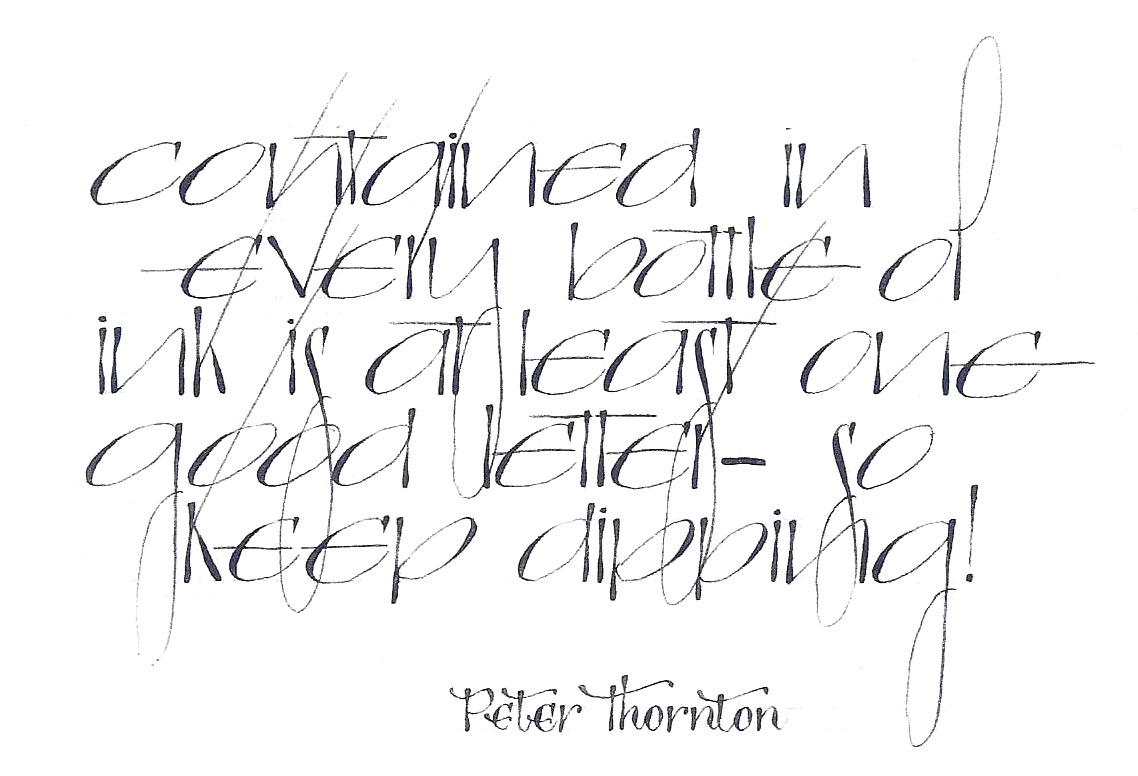 contained in
every bottle of
ink is at least one
good letter- so
keep dipping!
Peter Thornton